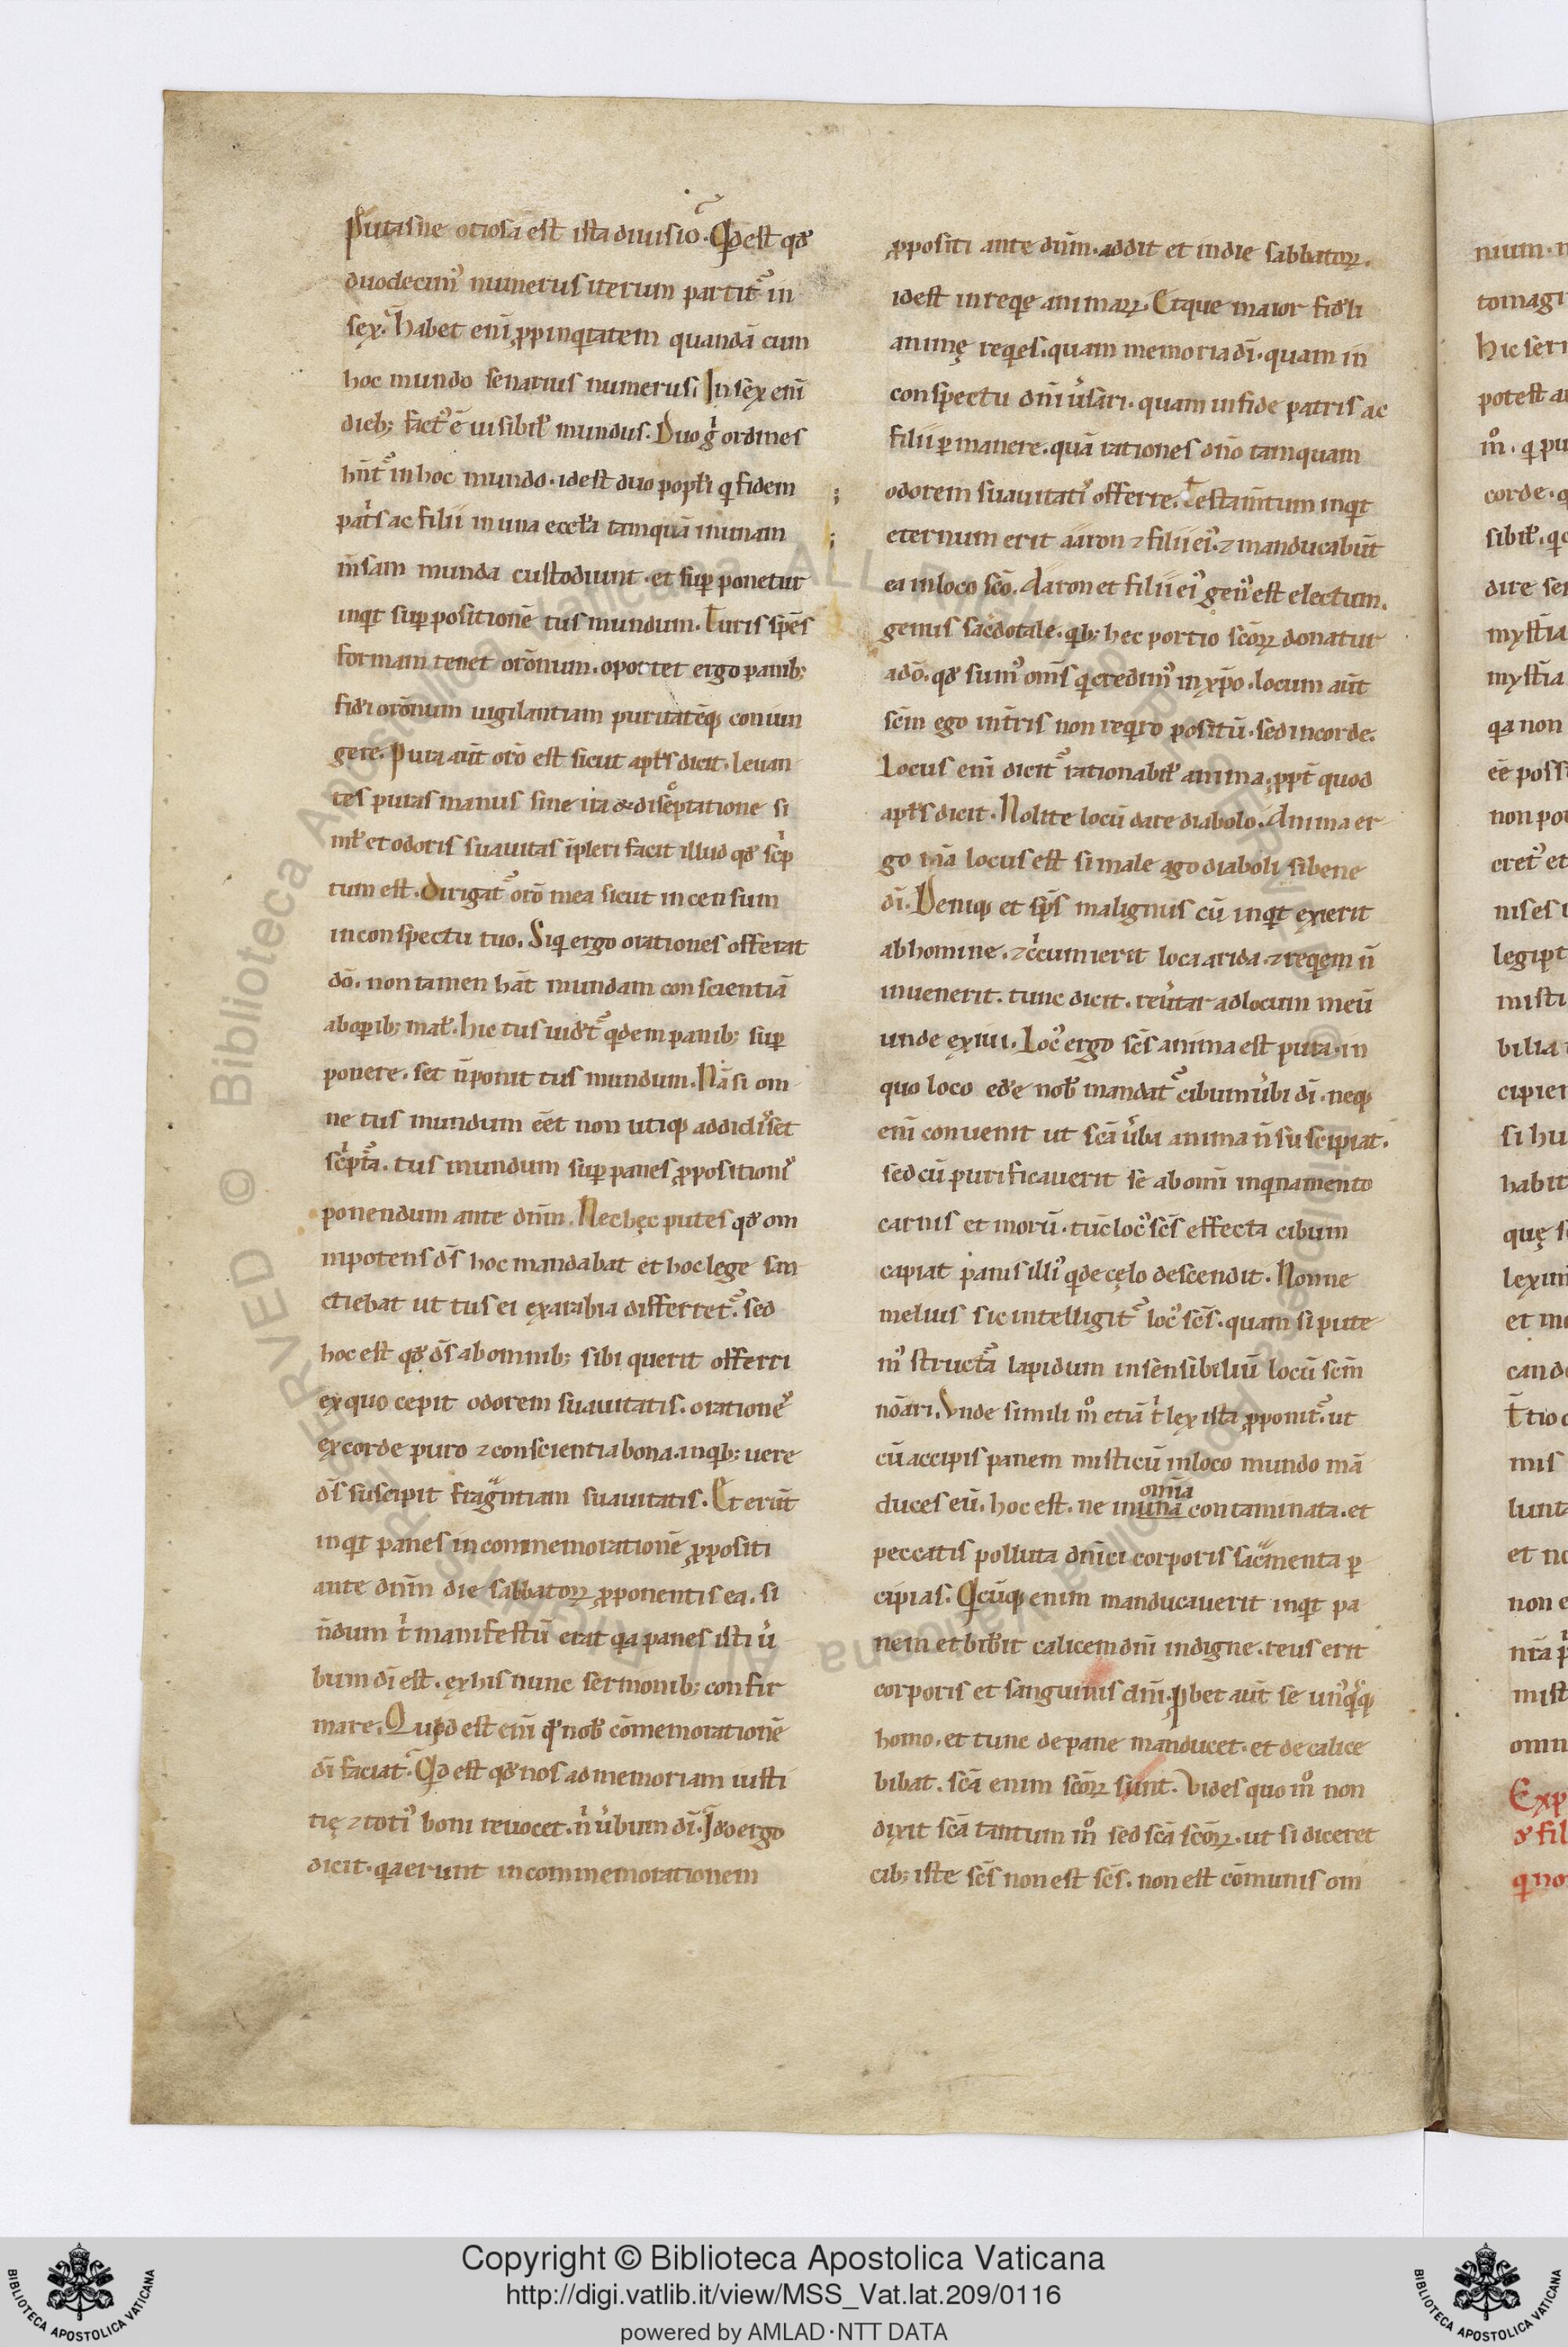 Putasne otiosa est ista diuisio. Qd est qđ
duodecim᾽ numerus iterum partit᾽ in
sex. Habet eni̅ ꝓpinqͥtatem quanda̅ cum
hoc mundo senarius numerus. In sex eni̅
dieb; fact᾽ e̅ uisibił mundus. Duo gͥ ordines
hn̅t᾽ in hoc mundo. id est duo popłi q̇ fidem
patͥs ac filii in una eccła tamqua̅ in unam
m̅sam munda custodiunt. et suꝑ ponetur
inqͥt suꝑ positione̅ tus mundum. Turis spe̅s
formam tenet oro̅num. oportet ergo panib;
fiđi oro̅num uigilantiam puritate̅q; coniun
gere. Pura aut̅ oro̅ est sicut apłs dicit. leuan
tes puras manus sine ira & disceptatione si
mł et odoris suauitas i̅pleri facit illud qđ scͥp
tum est. Dirigat᾽ oro̅ mea sicut incensum
in conspectu tuo. Siqͥ ergo orationes offerat
do̅. non tamen ha̅t mundam conscientia̅
ab oꝑib; mał. hic tus uiđt᾽ qͥdem panib; suꝑ
ponere. set n̅ ponit tus mundum. Na̅ si om
ne tus mundum ee̅t non utiq; addidiss&
scͥpt᾽a. tus mundum suꝑ panes ꝓposition᾽
ponendum ante dn̅m. Nec hęc putes qđ om
nipotens ds̅ hoc mandabat et hoc lege san
ctiebat ut tus ei ex arabia differret᾽. sed
hoc est qđ ds̅ ab omnib; sibi querit offerri
ex quo cepit odorem suauitatis. oratione᾽
ex corde puro ⁊ conscientia bona. in qͥb; uere
ds̅ suscipit fragͣntiam suauitatis. Et eru̅t
inqͥt panes in commemoratione̅ ꝓpositi
ante dn̅m die sabbatoꝝ ꝓponentis ea. si
n̅dum tͥ manifestu̅ erat qͥa panes isti uͥ
bum di̅ est. ex his nunc sermonib; confir
mare. Quid est eni̅ qđ nob᾽ co̅memoratione̅
di̅ faciat. Qͥd est qđ nos ad memoriam iusti
tię ⁊ toti᾽ boni reuocet. nͥ uͥbum di̅. Iđo ergo
dicit. qͥa erunt in commemorationem
ꝓpositi ante dn̅m. addit et in die sabbatoꝝ.
id est in reqͥe animaꝝ. Et que maior fiđli
animę reqͥes. quam memoria di̅. quam in
conspectu dn̅i uͥsari. quam in fide patris ac
filii ꝑmanere. qua̅ rationes dn̅o tamquam
odorem suauitati᾽ offerre. Testam̅tum inqͥt
eternum erit aaron ⁊ filii ei᾽. ⁊ manducabu̅t
ea in loco sco̅. Aaron et filii ei᾽ gen᾽ est electum.
genus sacͤdotale. qͥb; hec portio sco̅ꝝ donatur
a do̅. qđ sum᾽ om̅s qͥ credim᾽ in xp̅o. locum aut̅
sc̅m ego in tr̅is non reqͥro positu̅. sed in corde.
Locus eni̅ dicit᾽ rationabił anima. ꝓpt̅ quod
apłs dicit. Nolite locu̅ dare diabolo. Anima er
go m̅a locus est si male ago diaboli si bene
di̅. Deniq; et sp̅s malignus cu̅ inqͥt exierit
ab homine. ⁊ cͥcumierit loca arida. ⁊ reqͥem n̅
inuenerit. tunc dicit. reuͥtar ad locum meu̅
unde exiui. Loc᾽ ergo sc̅s anima est pura. in
quo loco eđe nob᾽ mandat᾽ cibum uͥbi di̅. neq;
eni̅ conuenit ut sc̅a uͥba anima n̅ s̅ca suscipiat.
sed cu̅ purificauerit se ab omi̅ inqͥnamento
carnis et moru̅. tu̅c loc᾽ sc̅s effecta cibum
capiat panis illi᾽ qͥ de cęlo descendit. Nonne
melius sic intelligit᾽ loc᾽ sc̅s. quam si pute
m᾽ struct᾽a lapidum insensibiliu̅ locu̅ sc̅m
no̅ari. Vnde simili mͦ etia̅ tͥ lex ista ꝓponit᾽. ut
cu̅ accipis panem misticu̅ in loco mundo ma̅
duces eu̅. hoc est. ne in una̅ om̅ia contaminata. et
peccatis polluta dn̅ici corporis sacͣmenta ꝑ
cipias. Qͥcu̅q; enim manducauerit inqͥt pa
nem et bibͥit calicem dn̅i indigne. reus erit
corporis et sanguinis dn̅i. Ꝓbet aut̅ se un᾽qͥsq;
homo. et tunc de pane manducet. et de calice
bibat. sc̅a enim sco̅ꝝ sunt. Vides quo mͦ non
dixit sc̅a tantum mͦ sed sc̅a sco̅ꝝ. ut si diceret
cib; iste sc̅s non est sc̅s. non est co̅munis om
nium.
tomagi
hic ser
potest a
mͦ. qͥ pu
corde.
sibił. qͥ
dire se
mystia
mystia
qͥa non
ee̅ poss
non po
cret᾽ et
nises
legipt
misti
bilia
cipier
si hu
habit
quę s
lexim
et m
cand
tio
mis
lunt
et no
non e
nr̅a
mist
omn
Exp
đ fil
qͥ no
Copyright © Biblioteca Apostolica Vaticana
http://digi.vatlib.it/view/MSS_Vat.lat.209/0116
powered by AMLAD·NTT DATA
BIBLIOTECA APOSTOLICA VATICANA
BIBLIOTECA APOSTOLICA VATICANA